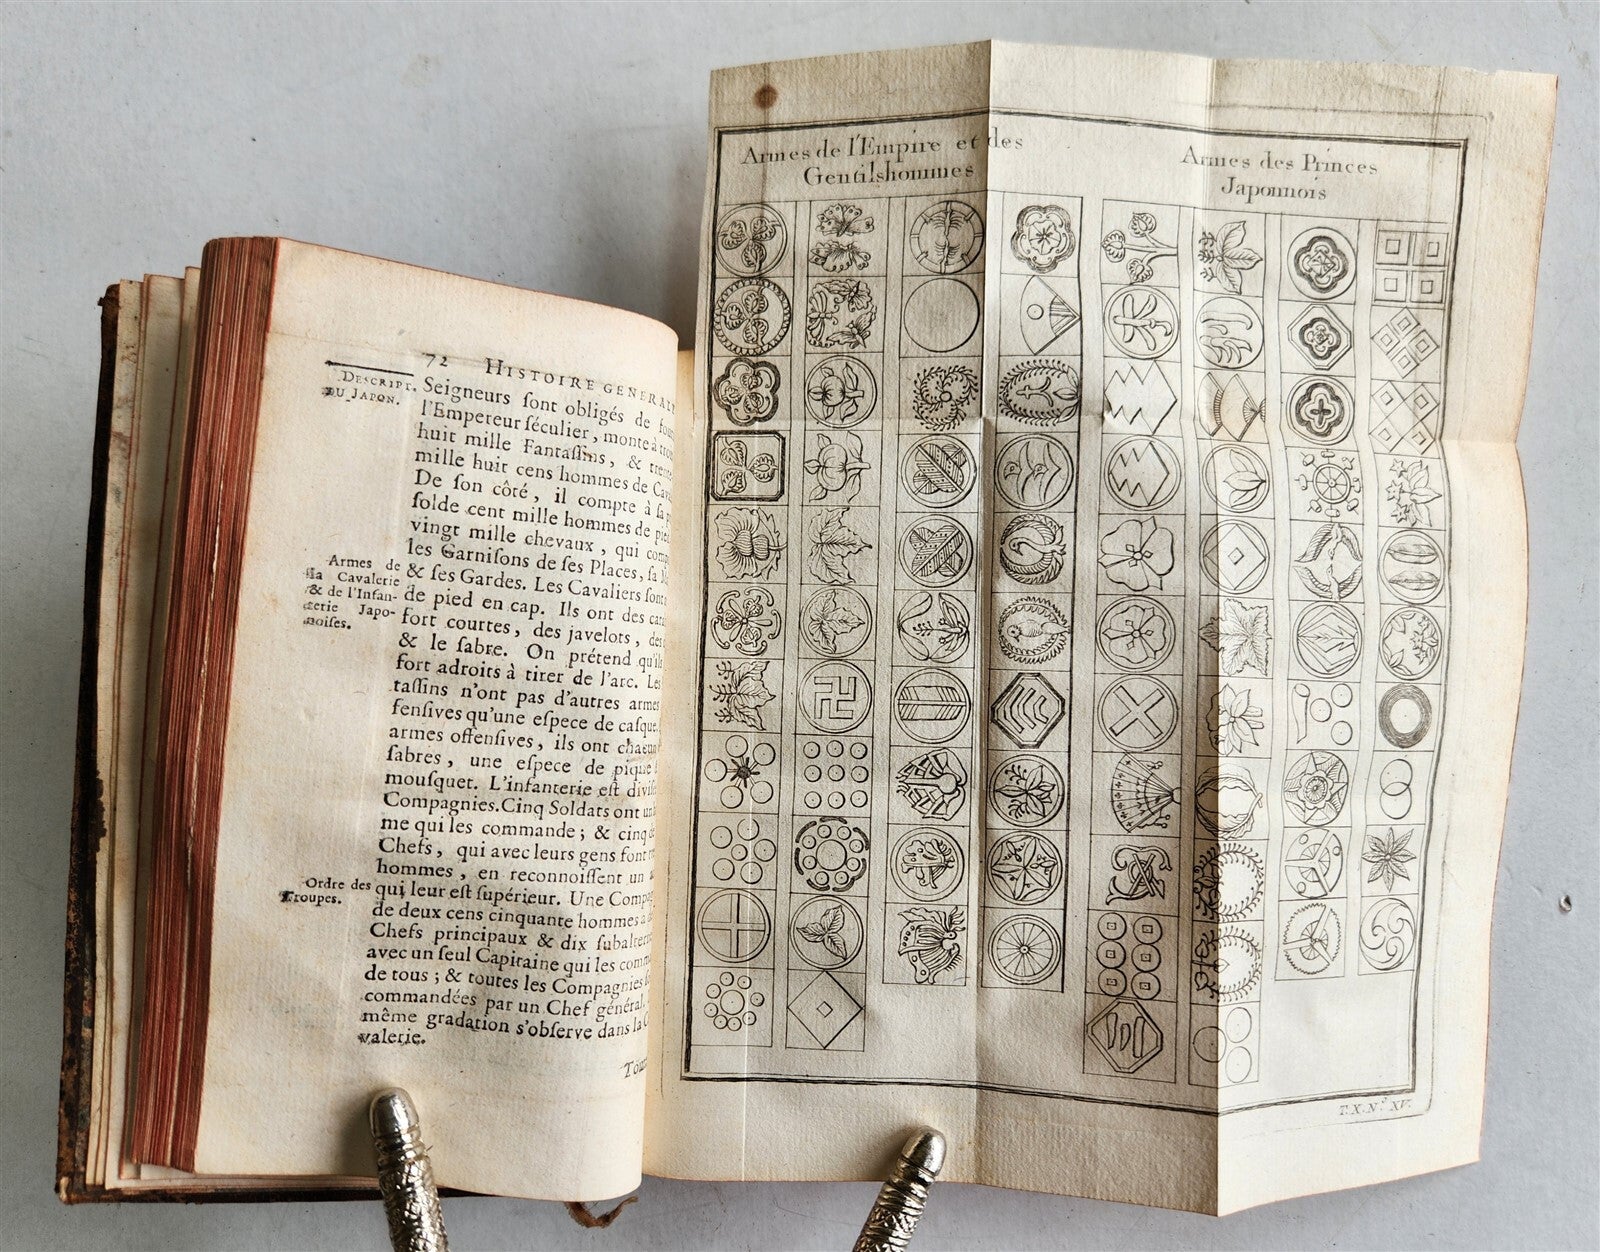 72 HISTOIRE GENERALE
DESCRIPT.
DU JAPON.
Seigneurs ſont obligés de
l'Empereur ſéculier, monte à
huit mille Fantaſſins, &
mille huit cens hommes de
De ſon côté, il compte à ſa
ſolde cent mille hommes de pied
vingt mille chevaux, qui
les Garniſons de ſes Places, ſa
Armes de
la Cavalerie
& de l'Infan-
terie Japo-
noiſes.
& ſes Gardes. Les Cavaliers ſont
de pied en cap. Ils ont des
fort courtes, des javelots,
& le ſabre. On prétend
fort adroits à tirer de l'arc. Les
taſſins n'ont pas d'autres armes
fenſives qu'une eſpece de caſque.
armes offenſives, ils ont chacun
ſabres, une eſpece de pique
mouſquet. L'infanterie eſt
Compagnies. Cinq Soldats ont
me qui les commande; & cinq
Chefs, qui avec leurs gens font
hommes, en reconnoiſſent un
Ordre des
Troupes.
qui leur eſt ſupérieur. Une
de deux cens cinquante hommes a
Chefs principaux & dix
avec un ſeul Capitaine qui les
de tous; & toutes les Compagnies
commandées par un Chef général.
même gradation s'obſerve dans la
valerie.
Armes de l'Empire et des
Gentilshommes
Armes des Princes
Japonnois
T.X.N.º XV.